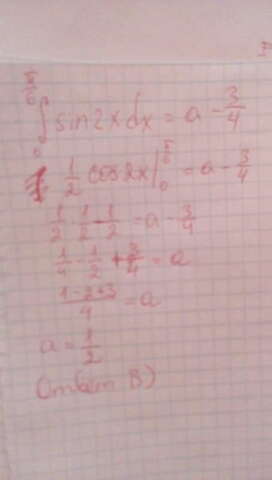 ∫₀^(π/6) sin2xdx = a - 3/4
1/2 cos2x |₀^(π/6) = a - 3/4
1/2 · 1/2 - 1/2 = a - 3/4
1/4 - 1/2 + 3/4 = a
(1-2+3)/4 = a
a = 1/2
Ответ B)